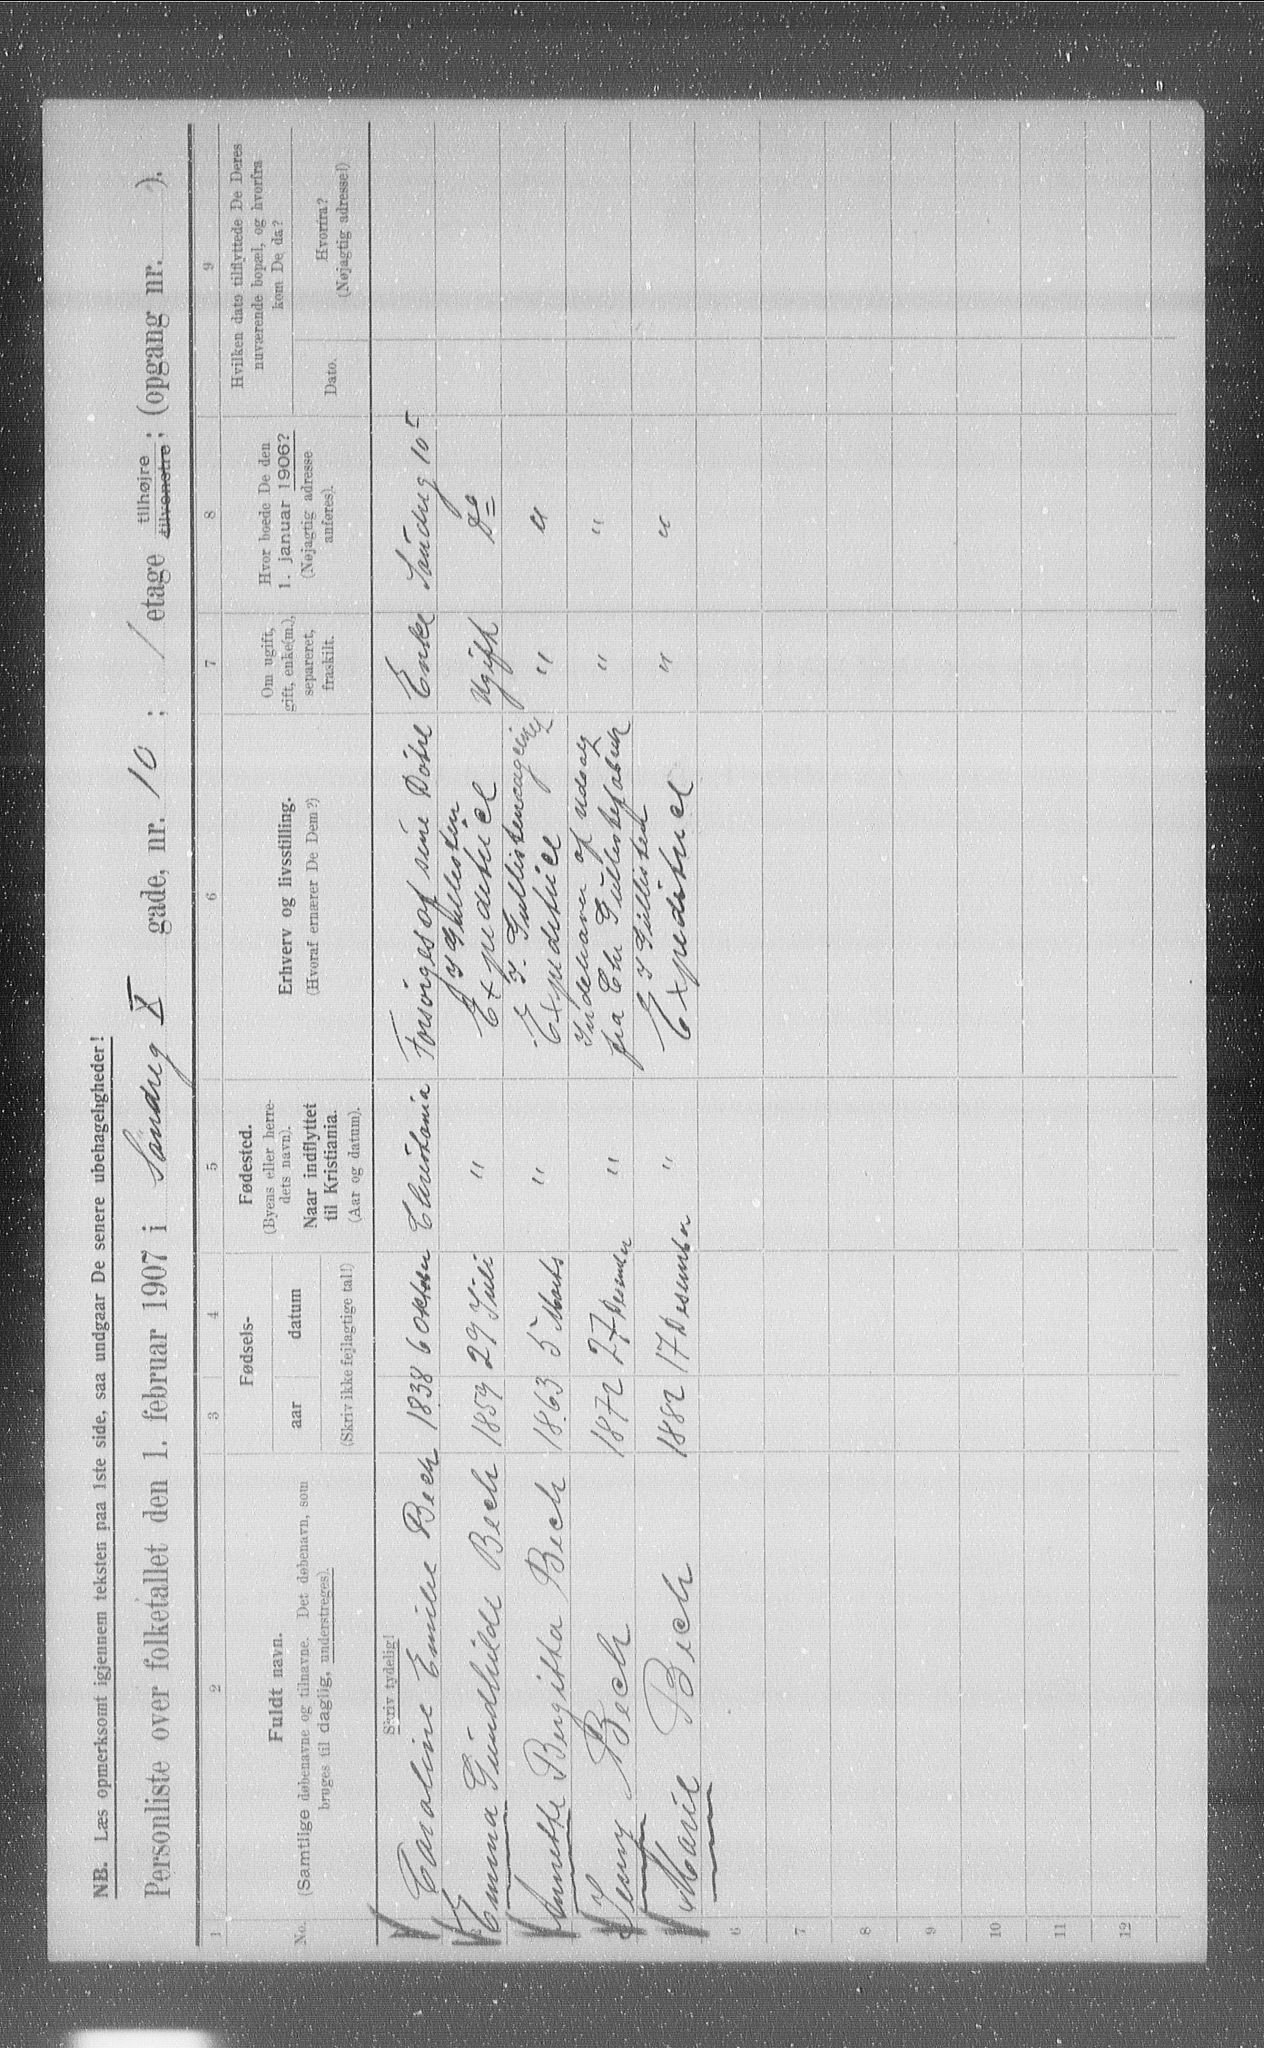 NB. Læs opmerksomt igjennem teksten paa 1ste side, saa undgaar De senere ubehageligheder!
Personliste over folketallet den 1. februar 1907 i Sandvg X gade, nr. 10 ; 1 etage tilhøjre tilvenstre ; (opgang nr. ).
1 2 3 4 5 6 7 8 9
No.
Fuldt navn.
(Samtlige døbenavne og tilnavne. Det døbenavn, som
bruges til daglig, understreges).
Fødsels-
aar datum
(Skriv ikke fejlagtige tal!)
Fødested.
(Byens eller herre-
dets navn).
Naar indflyttet
til Kristiania.
(Aar og datum).
Erhverv og livsstilling.
(Hvoraf ernærer De Dem?)
Om ugift,
gift, enke(m.),
separeret,
fraskilt.
Hvor boede De den
1. januar 1906?
(Nøjagtig adresse
anføres).
Hvilken dato tilflyttede De Deres
nuværende bopæl, og hvorfra
kom De da?
Dato.
Hvorfra?
(Nøjagtig adresse!)
Skriv tydelig!
Caroline Emilie Bech 1838 6 Oktober Christania Forsørges af sine Døtre Enke Sandvg 10
Emma Gundhilde Bech 1859 29 Juli " Expeditrice Ugift Do
Annette Bergitha Bech 1863 5 Marts " Expeditrice " "
Jenny Bech 1872 27 Desember " Indehaver af Udsalg
fra Chr " "
Marie Bech 1882 17 Desember " Expeditrice " "
6
7
8
9
10
11
12